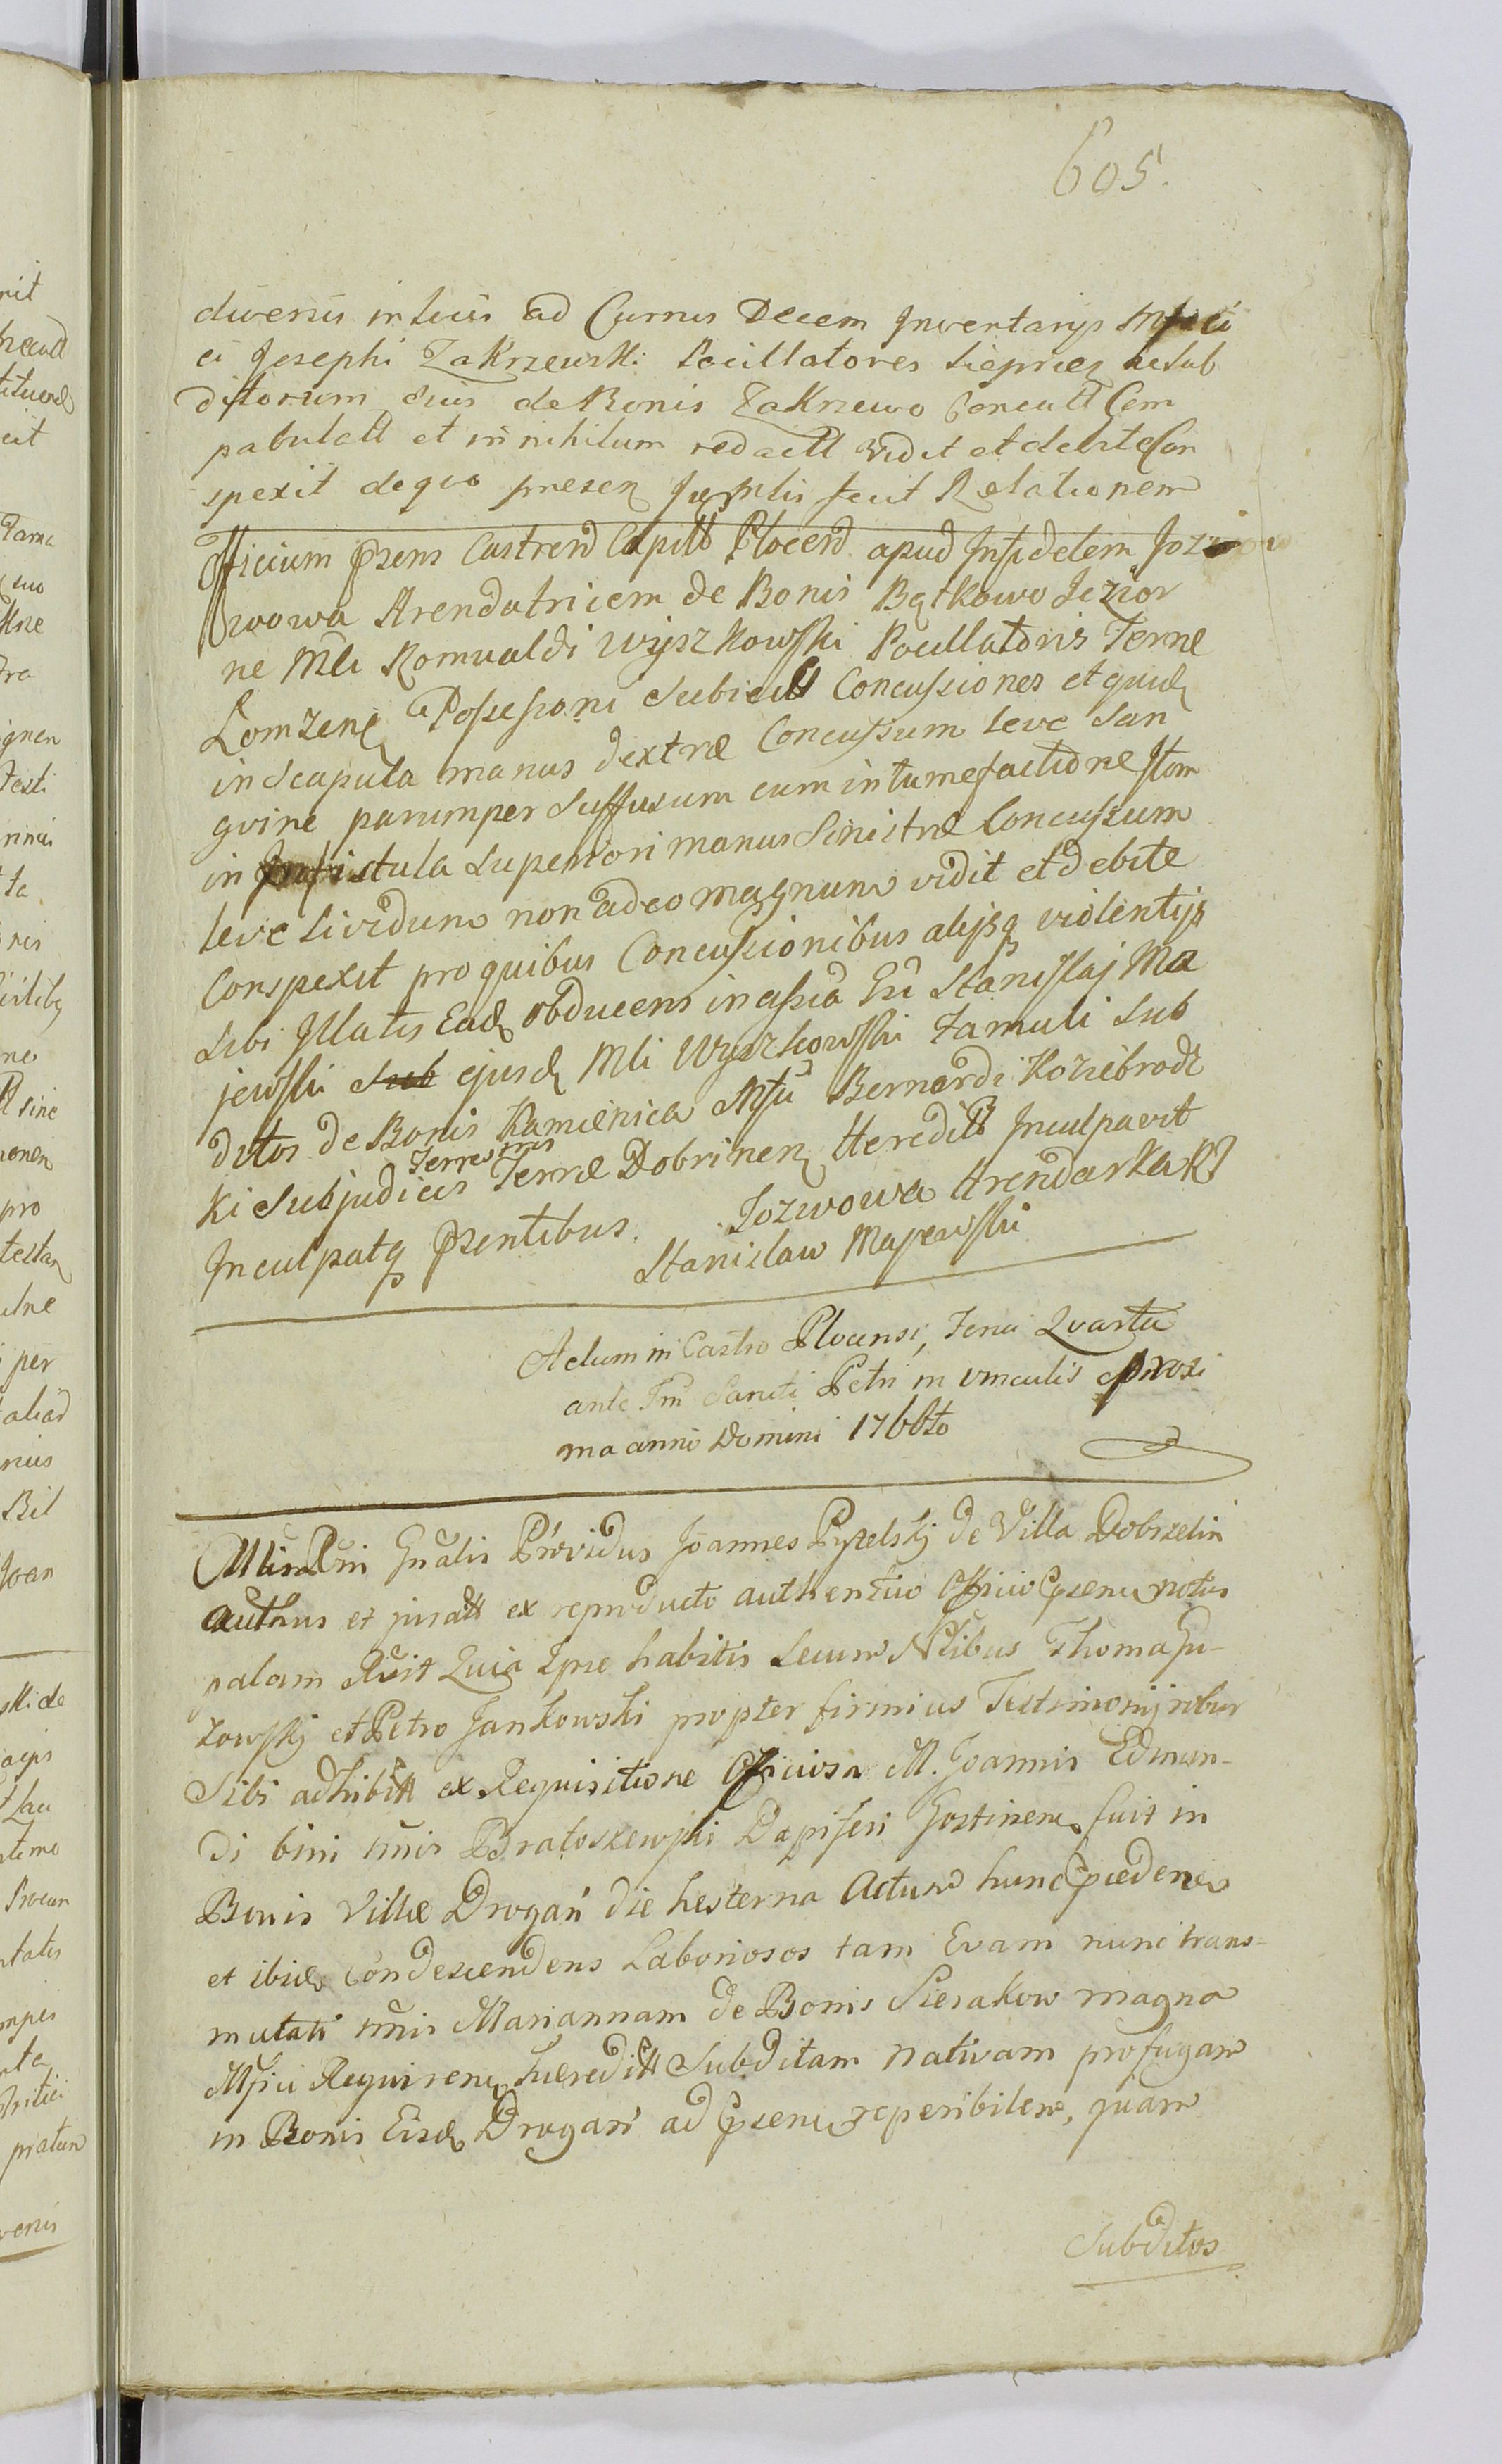 605.
diversis in locis ad Currus Decem Inventarijs Mfici
ei Josephi Zakrzewski Pocillatores Sieprcen ac sub
ditorum suis de Bonis Zakrzewo Concultt Com
pabulatt et in nihilum redactt vidit et debite Con
spexit de quo presen Jumtis fecit Relationem
Officium Pzens Castren Capitt Plocen apud Infidelem Joz
wowa Arendatricem de Bonis Bątkowo Jezior
ne Mli Romualdi Wyszkowski Pocillatoris Terræ
Lomzen Possessioni subiectt Concussiones et quid
in Scapula manus dextræ Concussum leve San
gvine parumper Suffusum cum intumefactione Item
in fistula superiori manus Sinistræ Concussum
leve lividum non adeo magnum vidit et debite
Conspexit pro quibus Concussionibus alijsq violentijs
Sibi Illatis Ead obducens in assia Gd Stanislaj Ma
jewski sub ejusd Mli Wyszkowski Famuli Sub
ditos de Bonis Kamienica Mfci Bernardi Koziebrodz
Terrestris
ki Subjudicis Terræ Dobrinen Hereditt Inculpavit
Inculpatq Pzentibus. Jozwowa Arendarka K
Stanislaw Majewski
Actum in Castro Plocensi, Feria Quarta
ante Fm Sancti Petri in vinculis proxi
ma anno Domini 1766to
Minrlni Gnalis Providus Joannes Pyzelskj de Villa Dobrzelin
authus et juratt ex reproducto authentico Officio Pzeni notus
palam Rcit Quia Ipse habitis Secum Nlibus Thoma Gu-
zowskj et Petro Jankowski propter firmius Testimonij robur
Sibi adhibitt ex Requisitione Officiosa M. Joannis Edmun-
di bini nnis Bratoszewski Dapiferi Gostinen fuit in
Bonis Villæ Drogań die hesterna Actum hunc Pceden
et ibid Condescendens Laboriosos tam Evam nunc trans-
mutati nnis Mariannam de Bonis Sierakow magno
Mfici Requiren hæreditt Subditam nativam profugam
in Bonis Eisd Drogań ad Pzens reperibilem, quam
Subditos